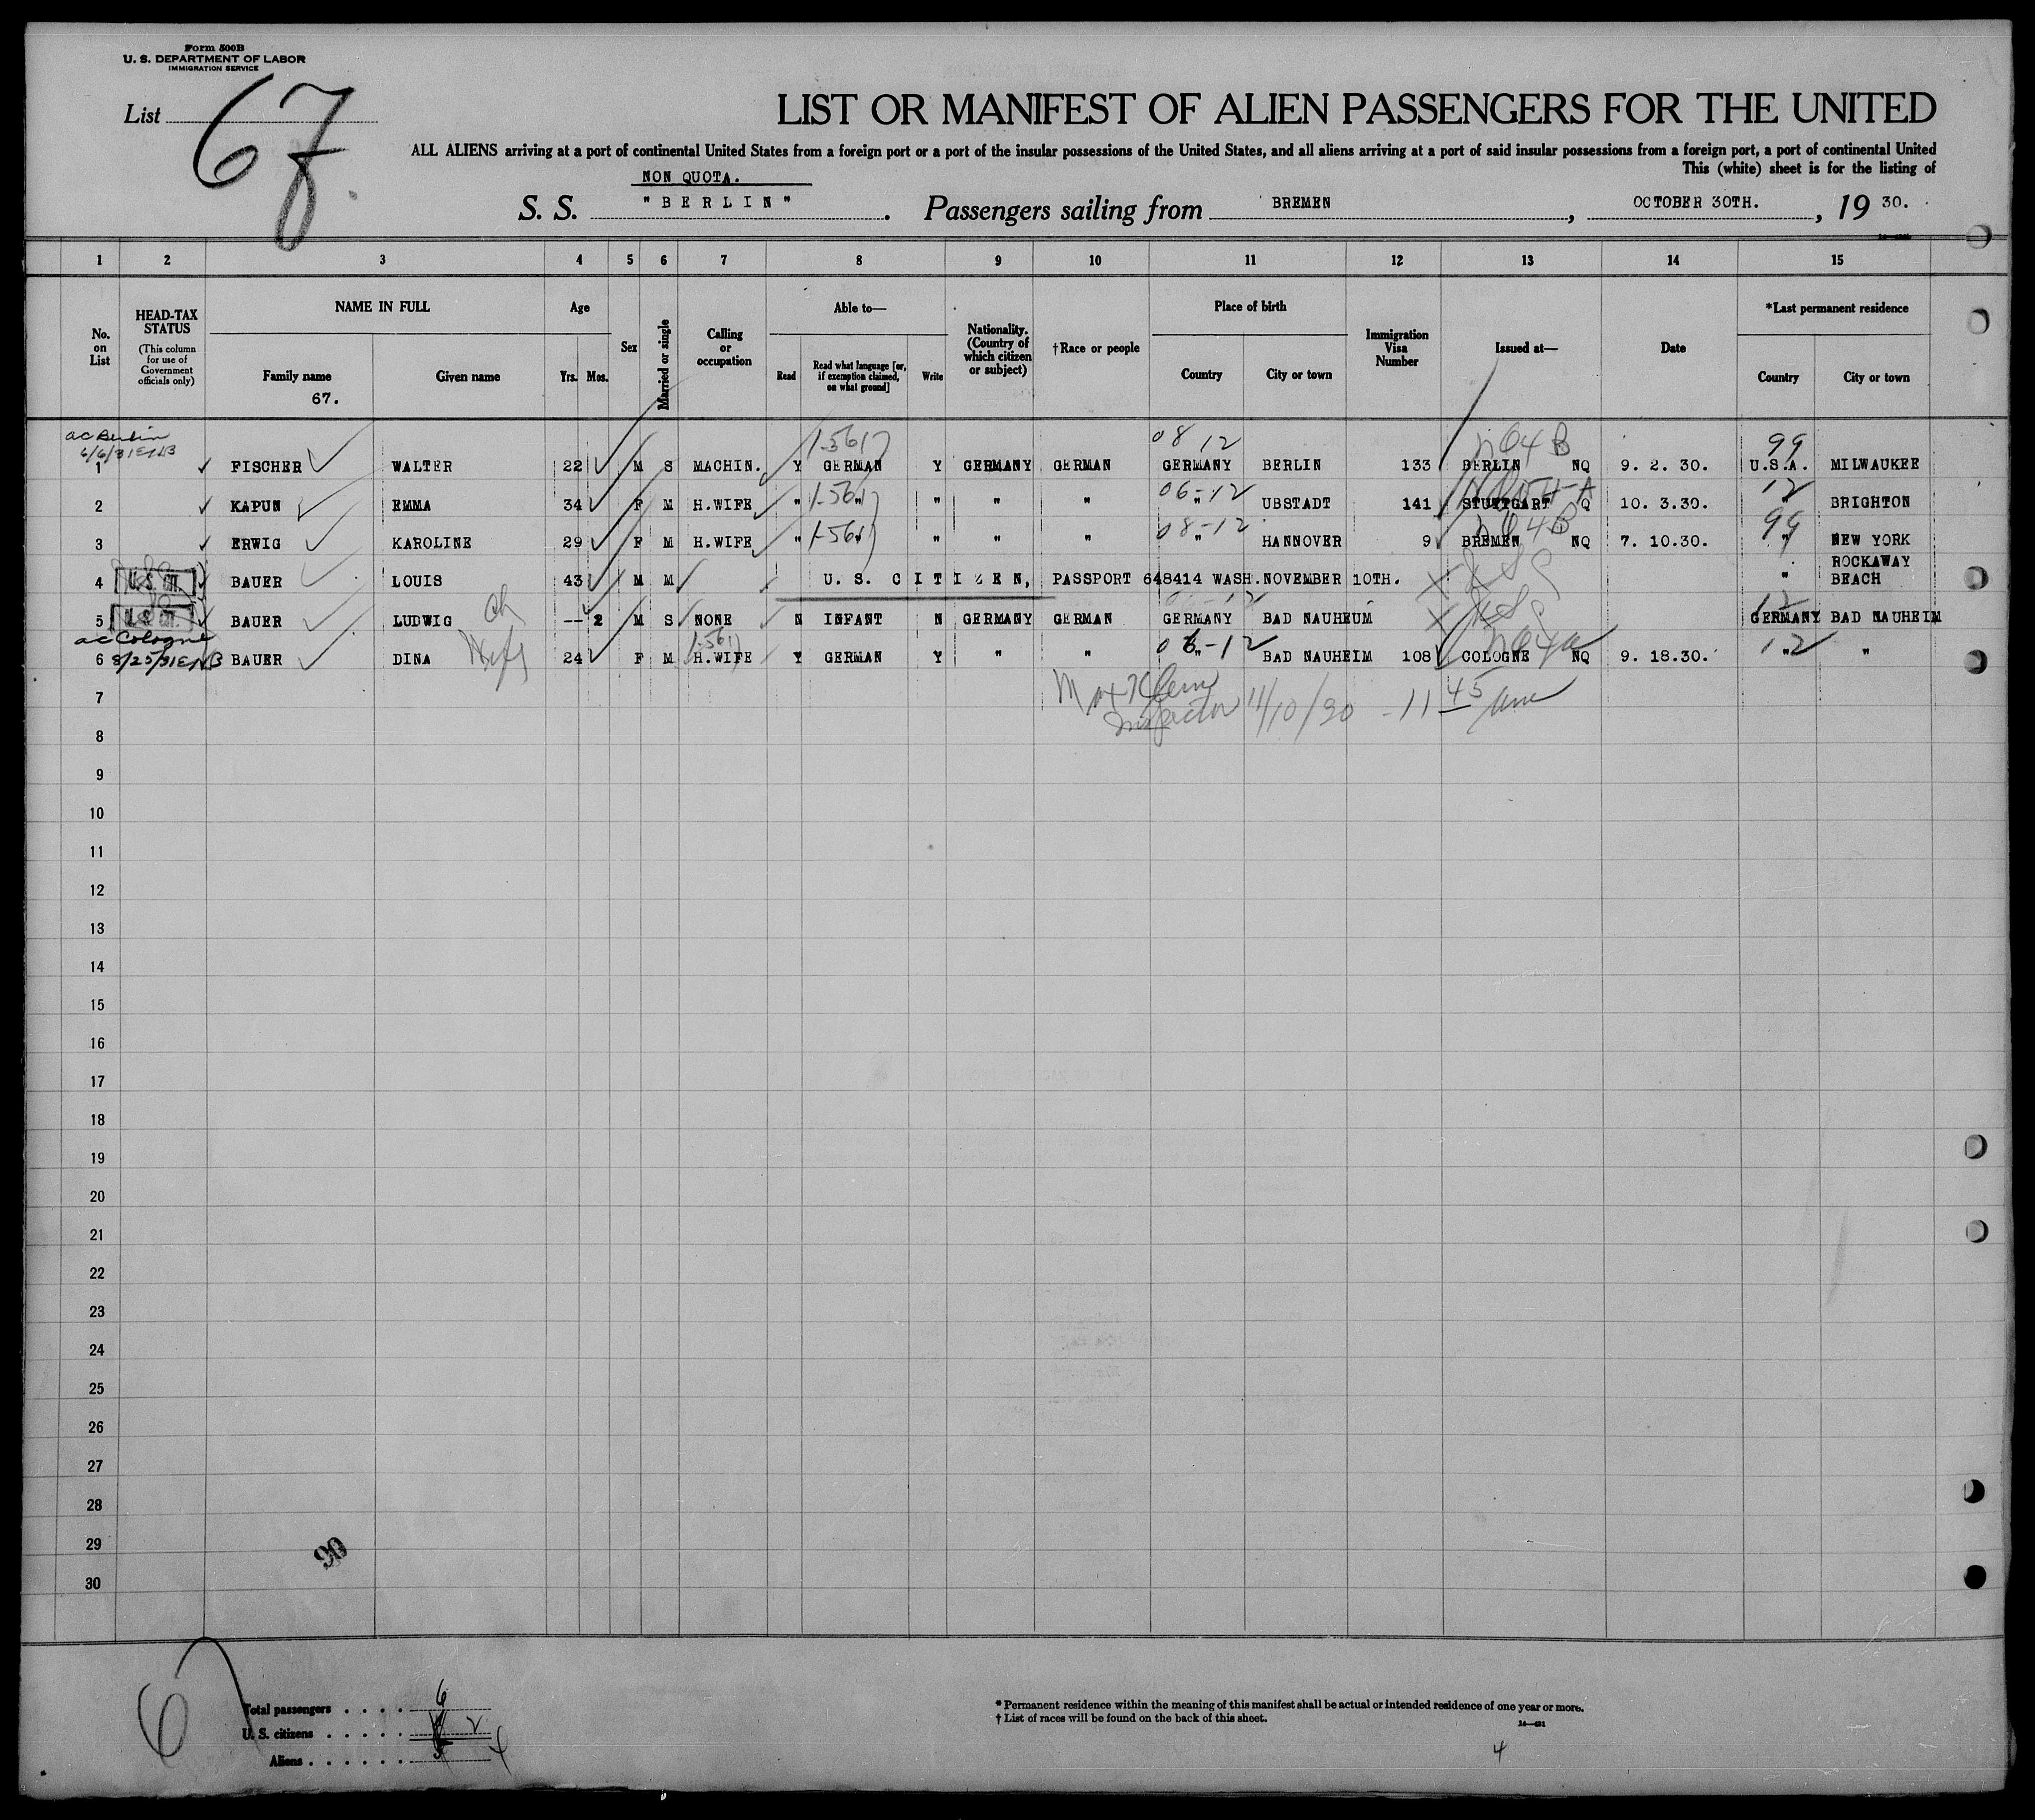 Form 500B
U. S. DEPARTMENT OF LABOR
IMMIGRATION SERVICE
List 67
LIST OR MANIFEST OF ALIEN PASSENGERS FOR THE UNITED
ALL ALIENS arriving at a port of continental United States from a foreign port or a port of the insular possessions of the United States, and all aliens arriving at a port of said insular possessions from a foreign port, a port of continental United
This (white) sheet is for the listing of
NON QUOTA.
S. S. "BERLIN". Passengers sailing from BREMEN, OCTOBER 30TH., 19 30.
1 2 3 4 5 6 7 8 9 10 11 12 13 14 15
No. on List
HEAD-TAX STATUS
(This column for use of Government officials only)
NAME IN FULL
Family name
67.
Given name
Age
Yrs. Mos.
Sex
Married or single
Calling or occupation
Able to—
Read
Read what language [or, if exemption claimed, on what ground]
Write
Nationality. (Country of which citizen or subject)
†Race or people
Place of birth
Country
City or town
Immigration Visa Number
Issued at—
Date
*Last permanent residence
Country
City or town
ac Berlin
1-561 08 12 N04B 99
1 FISCHER WALTER 22 M S MACHIN. Y GERMAN Y GERMANY GERMAN GERMANY BERLIN 133 BERLIN NQ 9. 2. 30. U.S.A. MILWAUKEE
1-561 06-12 12
2 KAPUN EMMA 34 F M H.WIFE " " " " " " UBSTADT 141 STUTTGART NQ 10. 3.30. " BRIGHTON
1-561 08-12 N04B 99
3 ERWIG KAROLINE 29 F M H.WIFE " " " " " " HANNOVER 9 BREMEN NQ 7. 10.30. " NEW YORK
4 U.S. CIT. BAUER LOUIS 43 M M U. S. CITIZEN, PASSPORT 648414 WASH.NOVEMBER 10TH. " ROCKAWAY BEACH
12
5 U.S. CIT. BAUER LUDWIG ch -- 2 M S NONE N INFANT N GERMANY GERMAN GERMANY BAD NAUHEUM GERMANY BAD NAUHEIM
ac Cologne 1-561 06-12 N04a 12
6 8/25/31 ENB BAUER DINA Wife 24 F M H.WIFE Y GERMAN Y " " " BAD NAUHEIM 108 COLOGNE NQ 9. 18.30. " "
7
Inspector 11/10/30 - 11 45
8
9
10
11
12
13
14
15
16
17
18
19
20
21
22
23
24
25
26
27
28
29
30
90
6
Total passengers . . . . 6
U. S. citizens . . . . . 2
Aliens . . . . . . 4
* Permanent residence within the meaning of this manifest shall be actual or intended residence of one year or more.
† List of races will be found on the back of this sheet.
14—491
4